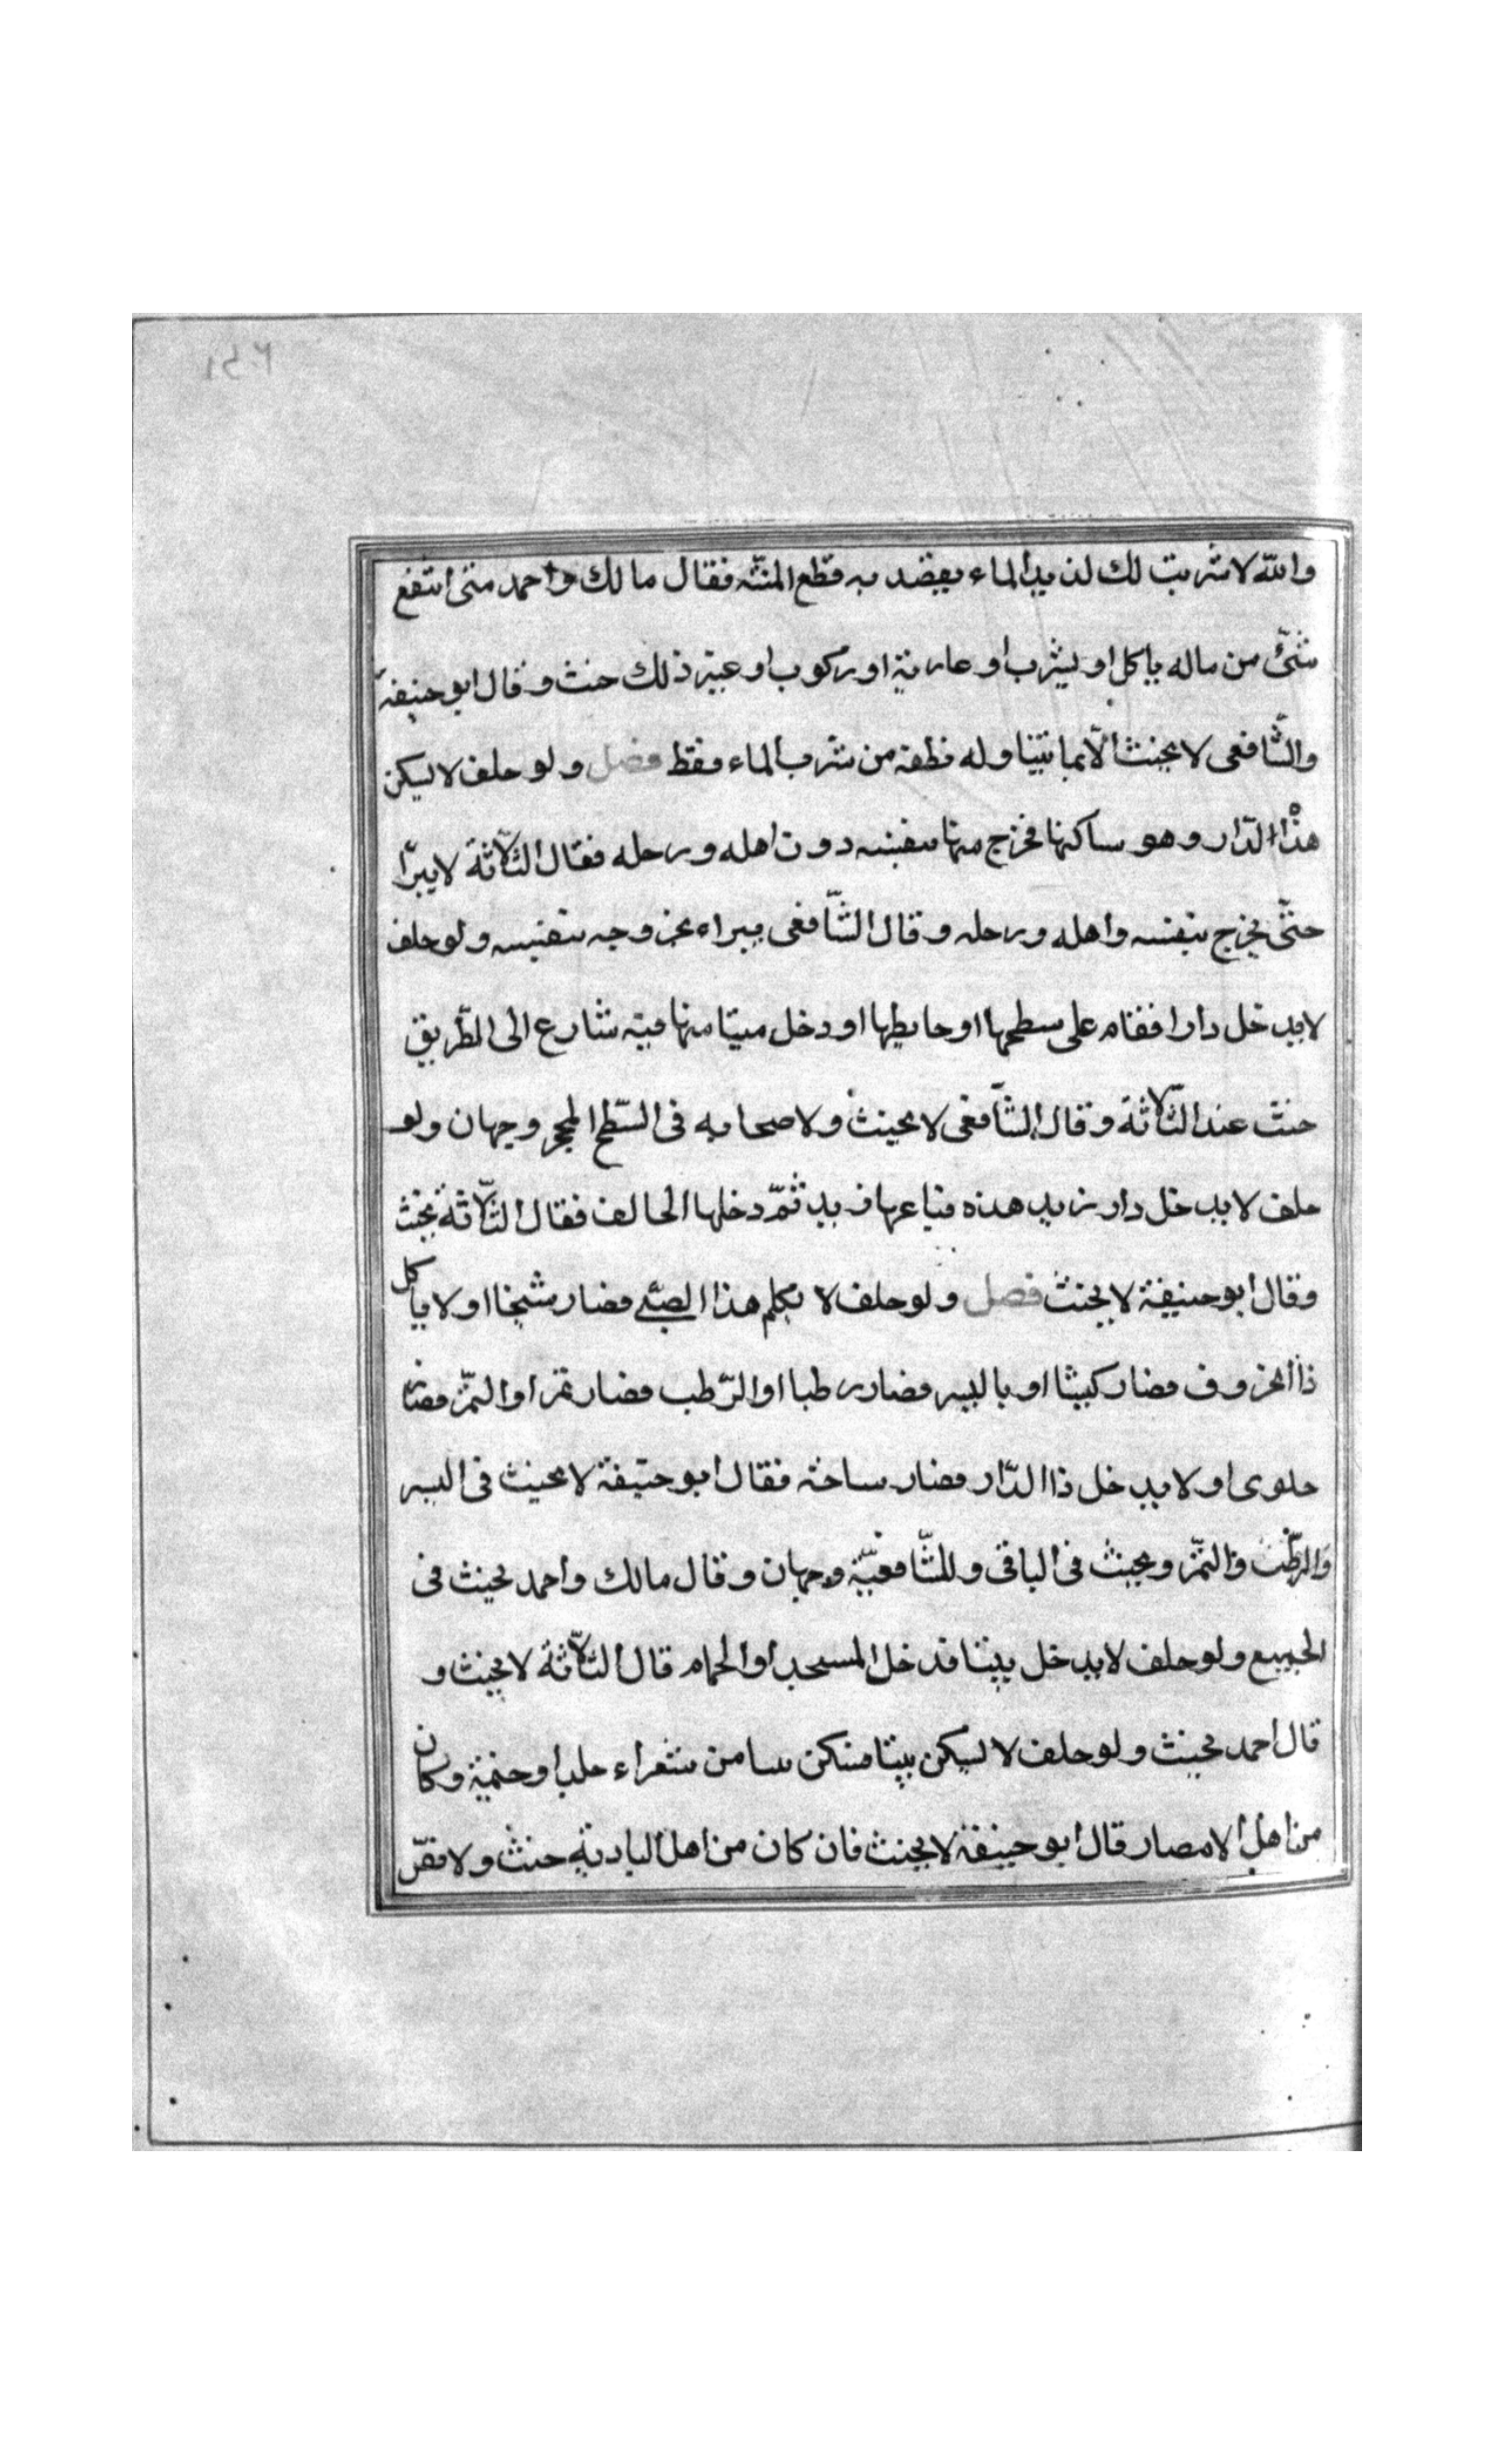 والله لا شربت لك لذيذ الماء يقصد به قطع المنّته فقال مالك واحمد متى انتفع
بشئ من ماله ياكل او يشرب او عارية او ركوب او غير ذلك حنث وقال ابو حنيفة
والشّافعى لا يحنث الّا بما يتناوله نطقه من شرب الماء فقط فصل ولو حلف لا يسكن
هذا الدّار وهو ساكنها فخرج منها بنفسه دون اهله ورحله فقال الثّلاثة لا يبرّا
حتّى يخرج بنفسه واهله ورحله وقال الشّافعى يبراء بخروجه بنفسه ولو حلف
لا يدخل دارا فقام على سطحها او حايطها او دخل بيتا منها فيه شارع الى الطّريق
حنث عند الثّلاثة وقال الشّافعى لا يحنث ولاصحابه فى السّطح المحجر وجهان ولو
حلف لا يدخل دار زيد هذه فباعها زيد ثمّ دخلها الحالف فقال الثّلاثة يحنث
وقال ابو حنيفة لا يحنث فصل ولو حلف لا يكلم هذا الصبّى فصار شيخا او لا ياكل
ذا الخروف فصار كبشا او بالبسر فصار رطبا او الرّطب فصار تمرا او التمّر فصار
حلوى او لا يدخل ذا الدّار فصار ساحة فقال ابو حنيفة لا يحنث فى البسر
والرطّب والتمّر ويحنث فى الباقى وللشّافعيّة وجهان وقال مالك واحمد يحنث فى
الجميع ولو حلف لا يدخل بيتا فدخل المسجد او الحمام قال الثّلاثة لا يحنث و
قال احمد يحنث ولو حلف لا ليسكن بيتا فسكن بيتا من شعراء جلد او خيمة وكان
من اهل الامصار قال ابو حنيفة لا يحنث فان كان من اهل البادية حنث ولا نصّ